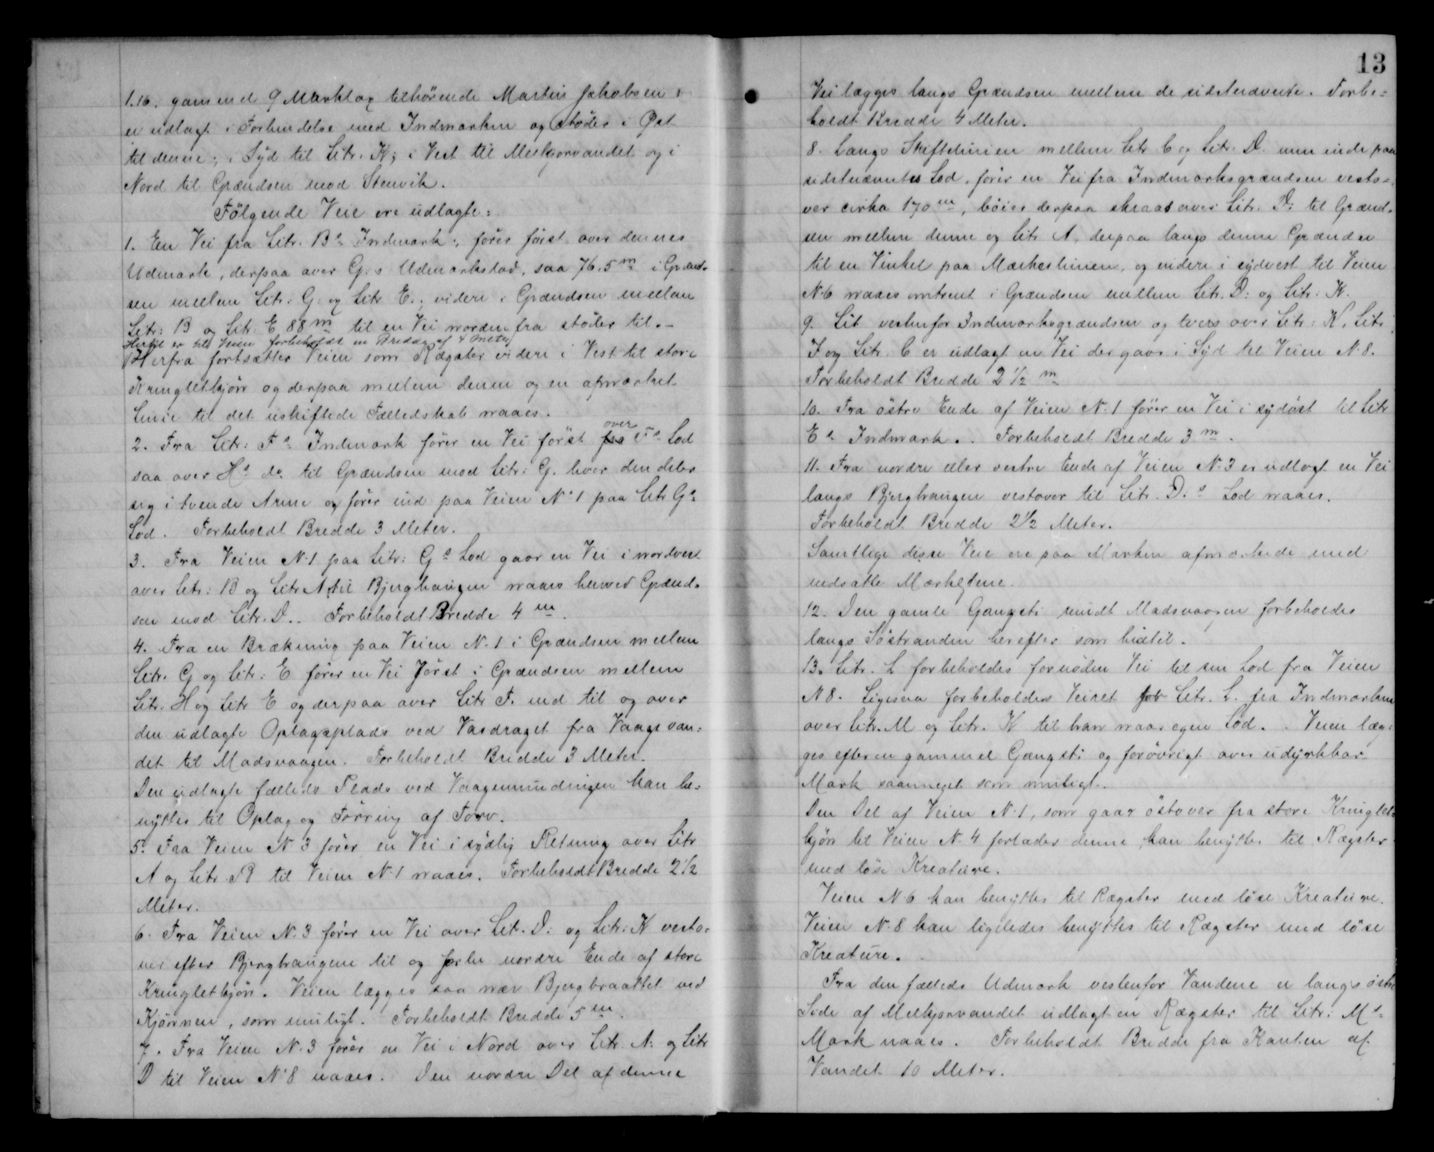 1.16. gammel 9 Marklag tilhörende Martin Jakobsen
er udlagt i Forbindelse med Indmarken og stöder i Öst
til denne; i Syd til Litr. K; i Vest til Melkjorvandet og i
Nord til Grændsen mod Stenvik.
Følgende Veie ere udlagte:
1. En Vei fra Litr. B's Indmark; förer först over dennes
Udmark, derpaa over G.s Udmarkslod, saa 76.5 m i Grænd-
sen mellem Litr. G. og Litr. E.; videre i Grændsen mellem
Litr: B og Litr. E 88 m til en Vei nordenfra stöder til.-
Hertil er till Veien forbeholdt en Bredde af 4 Meter
Herfra fortsætter Veien som Rægster videre i Vest til store
Kringletkjön og derpaa mellem denne og en afmærket
Linie til det uskiftede Fælledskab naaes.
2. Fra Litr: F's Indmark förer en Vei först fra over F's Lod
saa over H's do til Grændsen mod Litr: G. hvor den deler
sig i tvende Arme og förer ind paa Veien No 1 paa Litr G's
Lod. Forbeholdt Bredde 3 Meter.
3. Fra Veien N. 1 paa Litr: G's Lod gaar en Vei i nordvest
over Litr: B og Litr A til Bjerghaugen naaes henved Grænd-
sen mod Litr. D.. Forbeholdt Bredde 4 m.
4. Fra en Brækning paa Veien N. 1 i Grændsen mellem
Litr. G og Litr: E förer en Vei först i Grændsen mellem
Litr. H og Litr E og derpaa over Litr F. ind til og over
den udlagte Oplagsplads ved Vasdraget fra Vaagevan-
det til Madsvaagen. Forbeholdt Bredde 3 Meter.
Den udlagte fælleds Plads ved Vaagemundingen kan be-
nyttes til Oplag og Törring af Torv.
5. Fra Veien N 3 förer en Vei i sydlig Retning over Litr
A og Litr B til Veien N. 1 naaes. Forbeholdt Bredde 2 1/2
Meter.
6. Fra Veien N. 3 förer en Vei over Litr. D: og Litr: K vesto-
ver efter Bjergbraugene til og forbi nordre Ende af store
Kringletkjön. Veien lægges saa nær Bjergbraattet ved
Kjönnen, som muligt. Forbeholdt Bredde 5 m.
7. Fra Veien N. 3 förer en Vei i Nord over Litr. A. og Litr
D til Veien N. 8 naaes. Den nordre Del af denne
13
Vei lægges langs Grændsen mellem de sidstnævnte. Forbe-
holdt Bredde 4 Meter.
8. Langs Skiftelinien mellem Litr C og Litr. D. men inde paa
sidstnævntes Lod. förer en Vei fra Indmarksgrændsen vesto-
ver cirka 170 m, böier derpaa skraas over Litr. D: til Grænd-
sen mellem denne og Litr A, derpaa langs denne Grændse
til en Vinkel paa Mærkeslinien, og videre i sydvest til Veien
N. 6 naaes omtrent i Grændsen mellem Litr. D: og Litr: K.
9. Lit vestenfor Indmarksgrændsen og tvers over Litr: K, Litr:
I og Litr. C er udlagt en Vei der gaar i Syd til Veien N. 8.
Forbeholdt Bredde 2 1/2 m
10. Fra östre Ende af Veien N. 1 förer en Vei i sydöst til Litr
E's Indmark.. Forbeholdt Bredde 3 m.
11. Fra nordre eller vestre Ende af Veien N. 3 er udlagt en Vei
langs Bjergbraugen vestover til Litr. D.s Lod naaes.
Forbeholdt Bredde 2 1/2 Meter.
Samtlige disse Veie ere paa Marken afmærkede med
nedsatte Mærkestene.
12. Den gamle Gangsti rundt Madsvaagen forbeholdes
langs Söstranden herefter som hidtil.
13. Litr. L forbeholdes fornöden Vei til sin Lod fra Veien
N. 8. Ligesaa forbeholdes Veiret for Litr. L. fra Indmarken
over Litr. M og Litr. K til han naar egen Lod.. Veien læg-
ges efter en gammel Gangsti og forövrigt over udyrkbar
Mark saameget som muligt.
Den Del af Veien N. 1, som gaar östover fra store Kringlet-
kjön til Veien N. 4 forlader denne, kan benyttes til Rægster
med löse Kreature.
Veien N. 6 kan benyttes til Rægster med löse Kreature.
Veien N. 8 kan ligeledes benyttes til Rægster med löse
Kreature.
Fra den fælleds Udmark vestenfor Vandene er langs östre
Side af Melkjorvandet udlagt en Rægster til Litr: M's
Mark naaes. Forbeholdt Bredde fra Kanten af
Vandet 10 Meter.